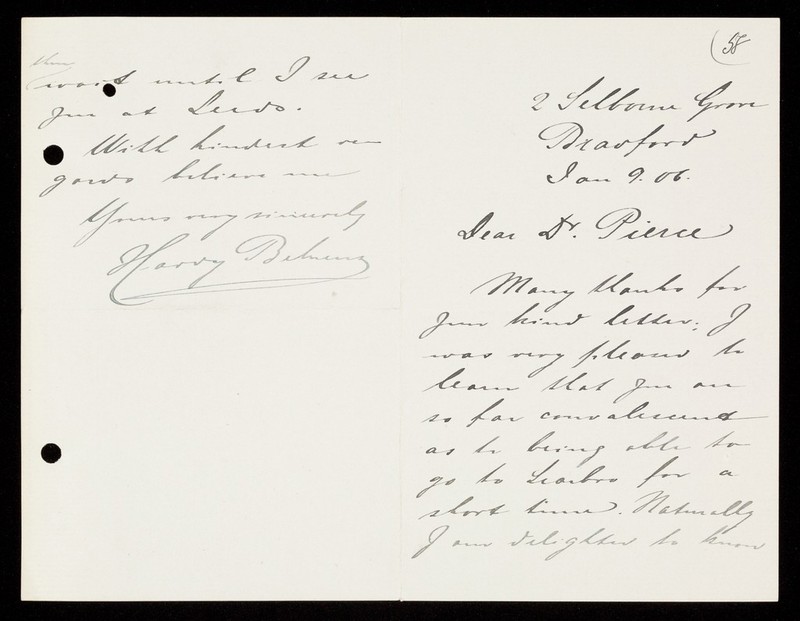 58
2 Selborne Grove
Bradford
Jan 9. 06.
Dear Dr. Pierce
Many thanks for
your kind letter; I
was very pleased to
learn that you are
so far convalescent
as to being able to
go to Scarbro for a
short time. Naturally
I am delighted to know
then
wait until I see
you at Leeds.
With kindest re-
gards believe me
Yours very sincerely
Harry Behrens